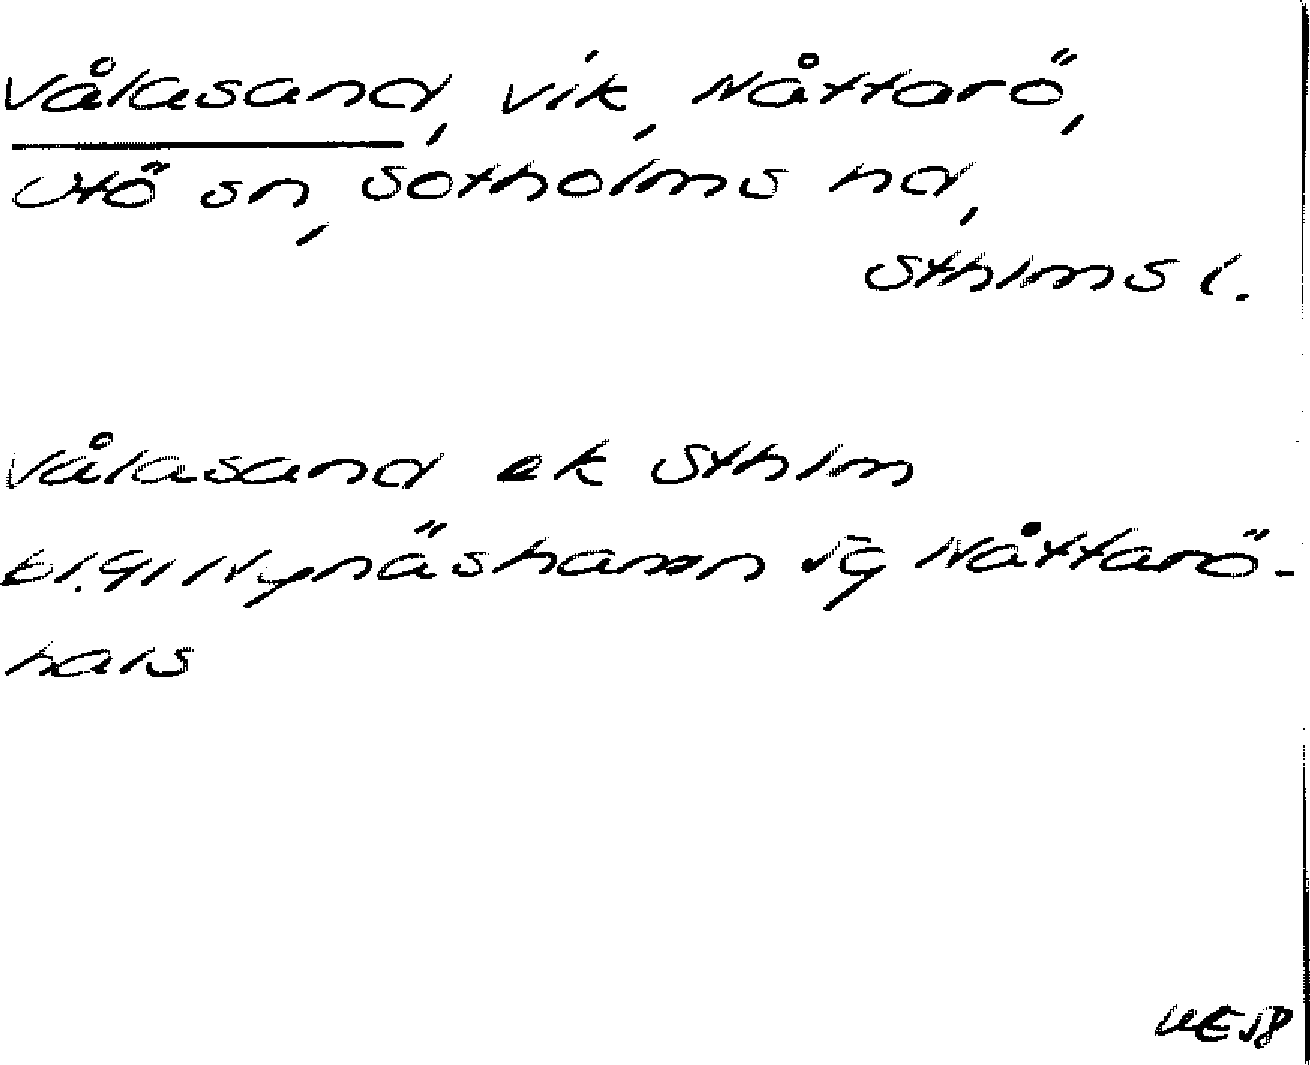 Vålasand, vik, Nåttarö,
Utö sn, Sotholms hd,
Sthlms l.
Vålasand ek Sthlm
bl. 91 Nynäshamn Nåttarö-
hals